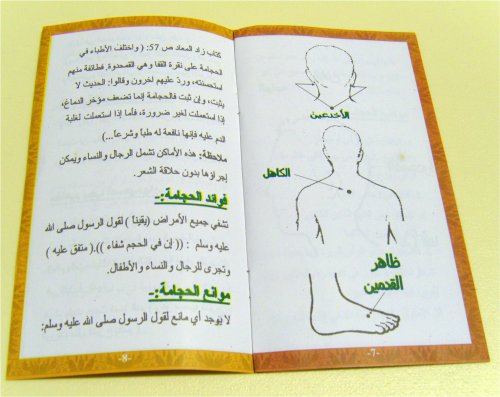 الأخدعين
الكاهل
ظاهر
القدمين
-7-
كتاب زاد المعاد ص 57: ( واختلف الأطباء في
الحجامة على نقرة القفا وهي القمحدوة. فطائفة منهم
استحسنته، وردّ عليهم آخرون وقالوا: الحديث لا
يثبت، وإن ثبت فالحجامة إنما تضعف مؤخر الدماغ،
إذا استعملت لغير ضرورة، فأما إذا استعملت لغلبة
الدم عليه فإنها نافعة له طباً وشرعاً...)
ملاحظة: هذه الأماكن تشمل الرجال والنساء ويمكن
إجراؤها بدون حلاقة الشعر.
فوائد الحجامة:-
تشفي جميع الأمراض (يقيناً ) لقول الرسول صلى الله
عليه وسلم : (( إن في الحجم شفاء )).( متفق عليه )
وتجرى للرجال والنساء والأطفال.
موانع الحجامة:-
لا يوجد أي مانع لقول الرسول صلى الله عليه وسلم:
-8-